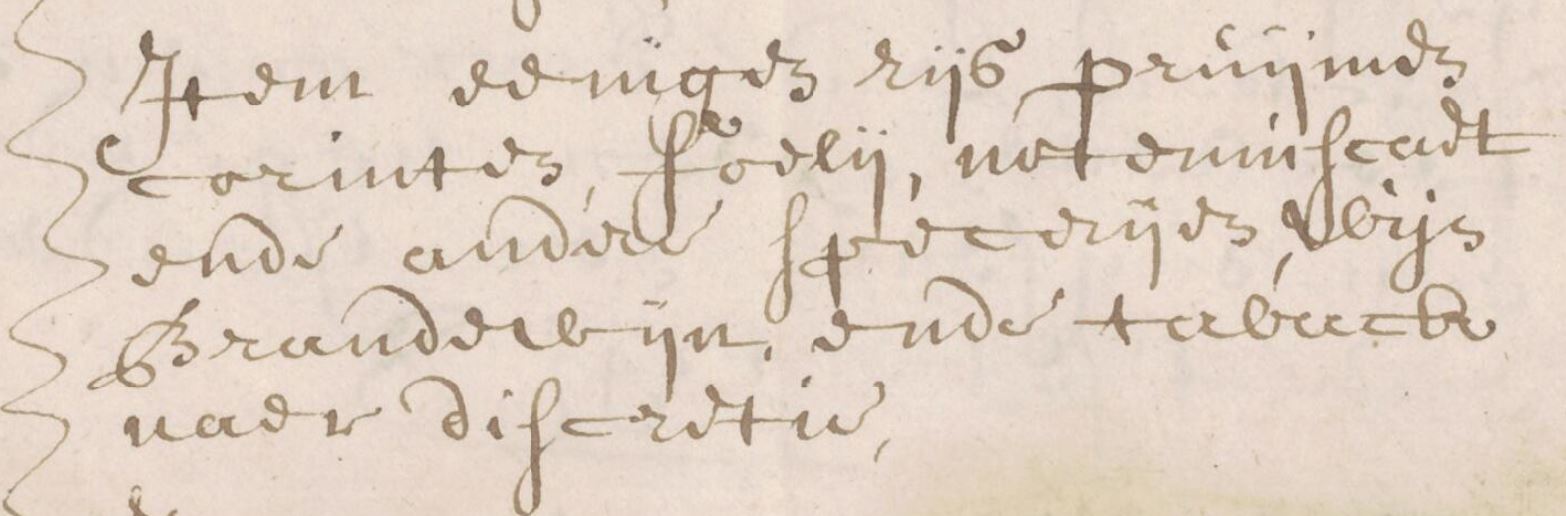 Item eenigen rijs pruijmen
corinten, foelij, notenmuscaet
ende andere specerijen, Wijn
Brandewijn, ende taback
naer discretie,